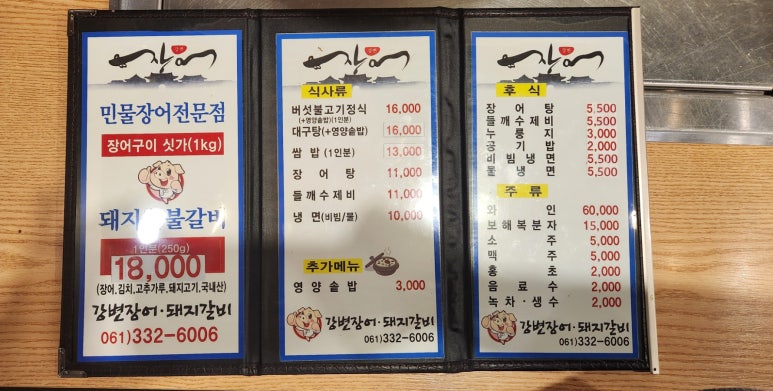 장어
강변
민물장어전문점
장어구이 싯가(1kg)
돼지 불갈비
1인분(250g)
18,000
(장어.김치,고추가루,돼지고기,국내산)
강변장어·돼지갈비
061)332-6006
장어
강변
식사류
버섯불고기정식 16,000
(+영양솥밥)(1인분)
대구탕(+영양솥밥) 16,000
쌈 밥 (1인분) 13,000
장 어 탕 11,000
들 깨 수 제 비 11,000
냉 면(비빔/물) 10,000
추가메뉴
영 양 솥 밥 3,000
강변장어·돼지갈비
061)332-6006
장어
강변
후 식
장 어 탕 5,500
들깨수제비 5,500
누 룽 지 3,000
공 기 밥 2,000
비 빔 냉 면 5,500
물 냉 면 5,500
주 류
와 인 60,000
보해복분자 15,000
소 주 5,000
맥 주 5,000
홍 초 2,000
음 료 수 2,000
녹차·생수 2,000
강변장어·돼지갈비
061)332-6006